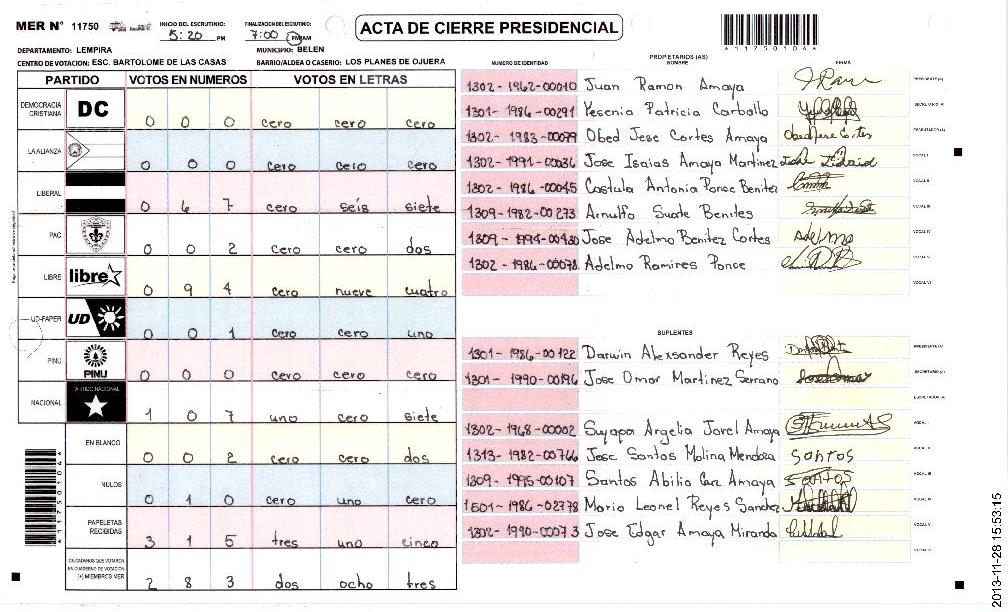 MER N° 11750
INICIO DEL ESCRUTINIO: 5:20 PM
FINALIZACION DEL ESCRUTINIO: 7:00 PM/AM
ACTA DE CIERRE PRESIDENCIAL
A11750104A
DEPARTAMENTO: LEMPIRA
MUNICIPIO: BELEN
CENTRO DE VOTACION: ESC. BARTOLOME DE LAS CASAS
BARRIO/ALDEA O CASERIO: LOS PLANES DE OJUERA
PARTIDO VOTOS EN NUMEROS VOTOS EN LETRAS
DEMOCRACIA CRISTIANA DC 0 0 0 cero cero cero
LA ALIANZA 0 0 0 cero cero cero
LIBERAL 0 6 7 cero seis siete
PAC 0 0 2 cero cero dos
LIBRE libre 0 9 4 cero nueve cuatro
UD-FAPER UD 0 0 1 cero cero uno
PINU PINU 0 0 0 cero cero cero
NACIONAL PARTIDO NACIONAL 1 0 7 uno cero siete
EN BLANCO 0 0 2 cero cero dos
NULOS 0 1 0 cero uno cero
PAPELETAS RECIBIDAS 3 1 5 tres uno cinco
CIUDADANOS QUE VOTARON EN CUADERNO DE VOTACION (+) MIEMBROS MER 2 8 3 dos ocho tres
A11750104A
NUMERO DE IDENTIDAD PROPIETARIOS (AS) NOMBRE FIRMA
1302-1962-00010 Juan Ramon Amaya PRESIDENTE(A)
1301-1986-00291 Yesenia Patricia Carballo SECRETARIO (A)
1302-1983-00079 Obed Jese Cortes Amaya ESCRUTADOR (A)
1302-1991-00036 Jose Isaias Amaya Martinez VOCAL I
1302-1986-00045 Costula Antonia Ponce Benitez VOCAL II
1309-1982-00273 Arnulfo Suate Benites VOCAL III
1309-1994-00430 Jose Adelmo Benitez Cortes Adelmo VOCAL IV
1302-1986-00078 Adelmo Ramires Ponce VOCAL V
VOCAL VI
SUPLENTES
1301-1986-00122 Darwin Alexsonder Reyes PRESIDENTE(A)
1301-1990-00196 Jose Omar Martinez Serrano SECRETARIO (A)
ESCRUTADOR (A)
1302-1968-00002 Suyapa Argelia Jorel Amaya VOCAL I
1313-1982-00766 Jose Santos Molina Mendoza Santos VOCAL II
1309-1995-00107 Santos Abilio Amaya Santos VOCAL III
1501-1986-02778 Mario Leonel Reyes Sanchez VOCAL IV
1302-1990-00073 Jose Edgar Amaya Miranda VOCAL V
VOCAL VI
2013-11-28 15:53:15